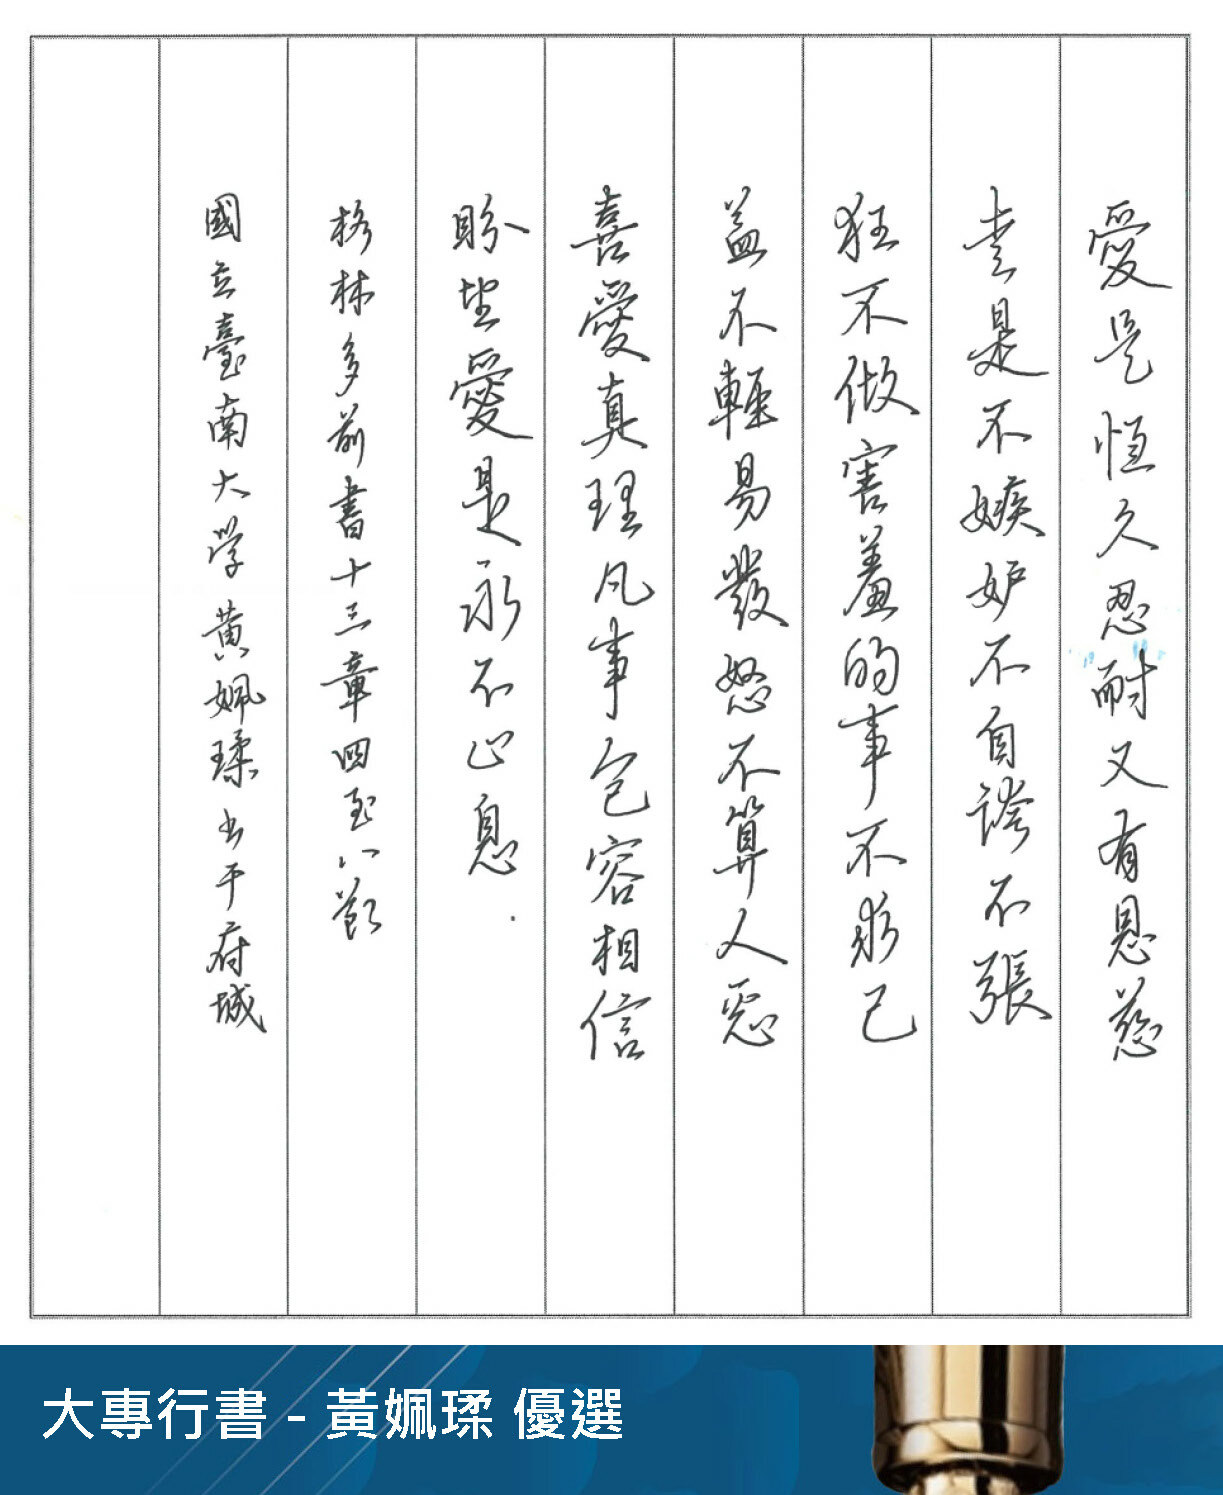 愛是恒久忍耐又有恩慈
愛是不嫉妒不自誇不張
狂不做害羞的事不求己
益不輕易發怒不算人惡
喜愛真理凡事包容相信
盼望愛是永不止息.
格林多前書十三章四至八節
國立臺南大学黄姵瑈书于府城
大專行書 - 黃姵瑈 優選